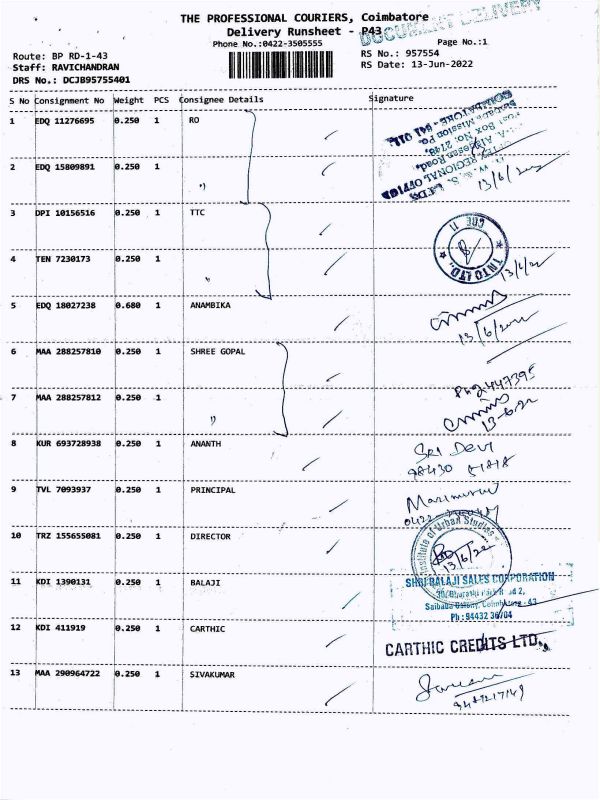 THE PROFESSIONAL COURIERS, Coimbatore
DOCUMENT DELIVERY
Delivery Runsheet - P43
Phone No.:0422-3505555
Page No.:1
Route: BP RD-1-43
RS No.: 957554
Staff: RAVICHANDRAN
RS Date: 13-Jun-2022
DRS No.: DCJB95755401
S No Consignment No Weight PCS Consignee Details Signature
1 EDQ 11276695 0.250 1 RO
2 EDQ 15809891 0.250 1 "
REGIONAL OFFICE
Post Box No. 2748,
Saibaba Mission Po.
COIMBATORE - 641 011.
13/6/22
3 DPI 10156516 0.250 1 TTC
4 TEN 7230173 0.250 1 "
TNTC LTD.
CBE 11
13/6/22
5 EDQ 18027238 0.680 1 ANAMBIKA
13/6/2022
6 MAA 288257810 0.250 1 SHREE GOPAL
7 MAA 288257812 0.250 1 "
13-6-22
8 KUR 693728938 0.250 1 ANANTH
SRI DEVI
98430
9 TVL 7093937 0.250 1 PRINCIPAL
0422
10 TRZ 155655081 0.250 1 DIRECTOR
Institute of Urban Studies
13/6/22
11 KDI 1390131 0.250 1 BALAJI
SHRI BALAJI SALES CORPORATION
Saibaba Colony, Coimbatore - 43
Ph : 94432 36704
12 KDI 411919 0.250 1 CARTHIC
CARTHIC CREDITS LTD.,
13 MAA 290964722 0.250 1 SIVAKUMAR